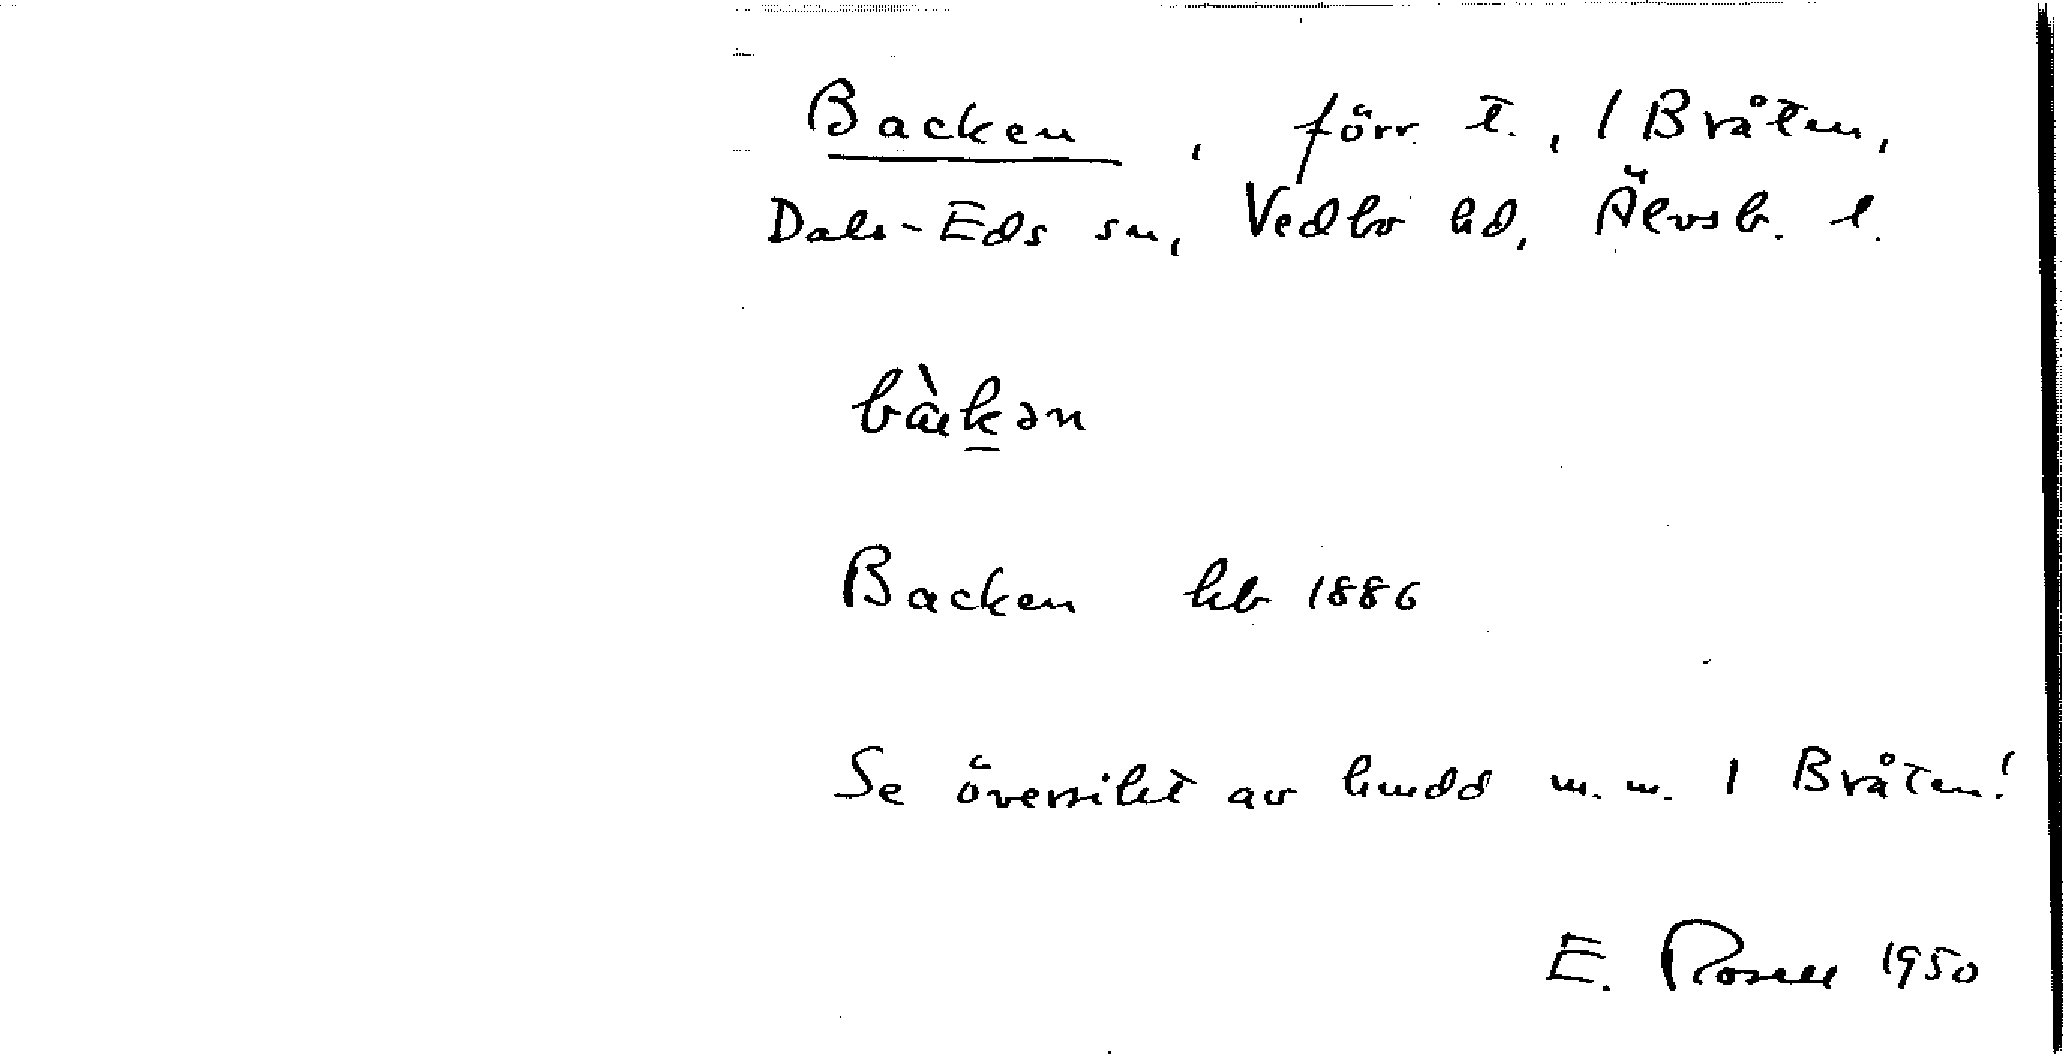 Backen, förr t., 1 Bråten,
Dals-Eds sn, Vedbo hd, Älvsb. l.
bàkən
Backen hb 1886
Se översikt av hmdd m.m. 1 Bråten!
E. Rosell 1950